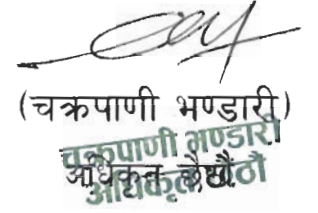 (चक्रपाणी भण्डारी)
चक्रपाणी भण्डारी
अधिकृत छैठौं
अधिकृत छैठौं